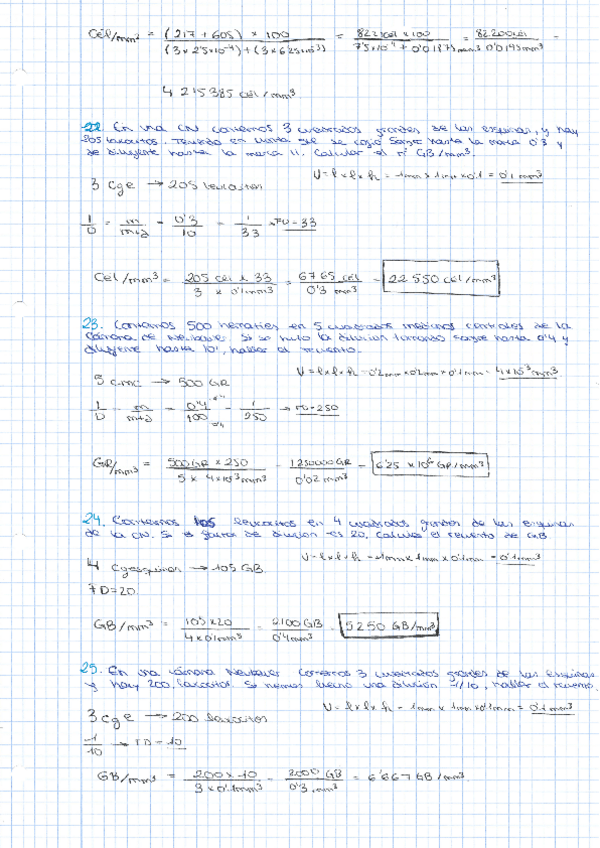 Cél/mm³ = (217 + 605) × 100 / (3 × 2'5×10⁻⁴) + (3 × 6'25×10⁻³) = 822 cél × 100 / 7'5×10⁻⁴ + 0'01875 mm³ = 82.200 cél / 0'0195 mm³ =
4 215 385 cél/mm³
22. En una CN contamos 3 cuadrados grandes de las esquinas, y hay
205 leucocitos. Teniendo en cuenta que se cogio sangre hasta la marca 0'3 y
de diluyente hasta la marca 11. Calcular el nº GB/mm³.
V = l × l × h = 1mm × 1mm × 0'1 = 0'1 mm³
3 Cge → 205 leucocitos
1/D = m/m+d = 0'3/10 = 1/33 → FD = 33
Cél/mm³ = 205 cél × 33 / 3 × 0'1mm³ = 6765 cél / 0'3 mm³ = 22.550 cél/mm³
23. Contamos 500 hematíes en 5 cuadrados medianos centrales de la
cámara de Neubauer. Si se hizo la dilución tomando sangre hasta 0'4 y
diluyente hasta 101, hallar el recuento.
V = l × l × h = 0'2mm × 0'2mm × 0'1mm = 4×10⁻³ mm³
5 c.mc → 500 GR
1/D = m/m+d = 0'4/100 = 1/250 → FD = 250
GR/mm³ = 500 GR × 250 / 5 × 4×10⁻³ mm³ = 125000 GR / 0'02 mm³ = 6'25 × 10⁶ GR/mm³
24. Contamos 105 leucocitos en 4 cuadrados grandes de las esquinas
de la CN. Si el factor de dilución es 20. Calcula el recuento de GB.
V = l × l × h = 1mm × 1mm × 0'1mm = 0'1mm³
4 Cg esquinas → 105 GB.
FD = 20.
GB/mm³ = 105 × 20 / 4 × 0'1mm³ = 2100 GB / 0'4mm³ = 5250 GB/mm³
25. En una cámara Neubauer contamos 3 cuadrados grandes de las esquinas
y hay 200 leucocitos. Si hemos hecho una dilución 1/10, hallar el recuento.
V = l × l × h = 1mm × 1mm × 0'1mm = 0'1mm³
3 cge → 200 leucocitos
1/10 → FD = 10
GB/mm³ = 200 × 10 / 3 × 0'1mm³ = 2000 GB / 0'3 mm³ = 6'667 GB/mm³